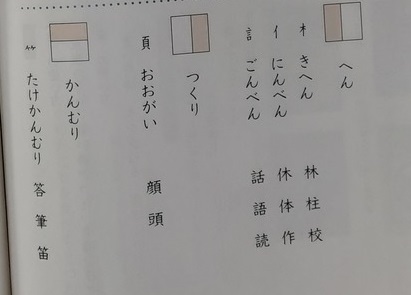 へん
木 きへん 林 柱 校
亻 にんべん 休 体 作
訁 ごんべん 話 語 読
つくり
頁 おおがい 顔 頭
かんむり
⺮ たけかんむり 答 筆 笛